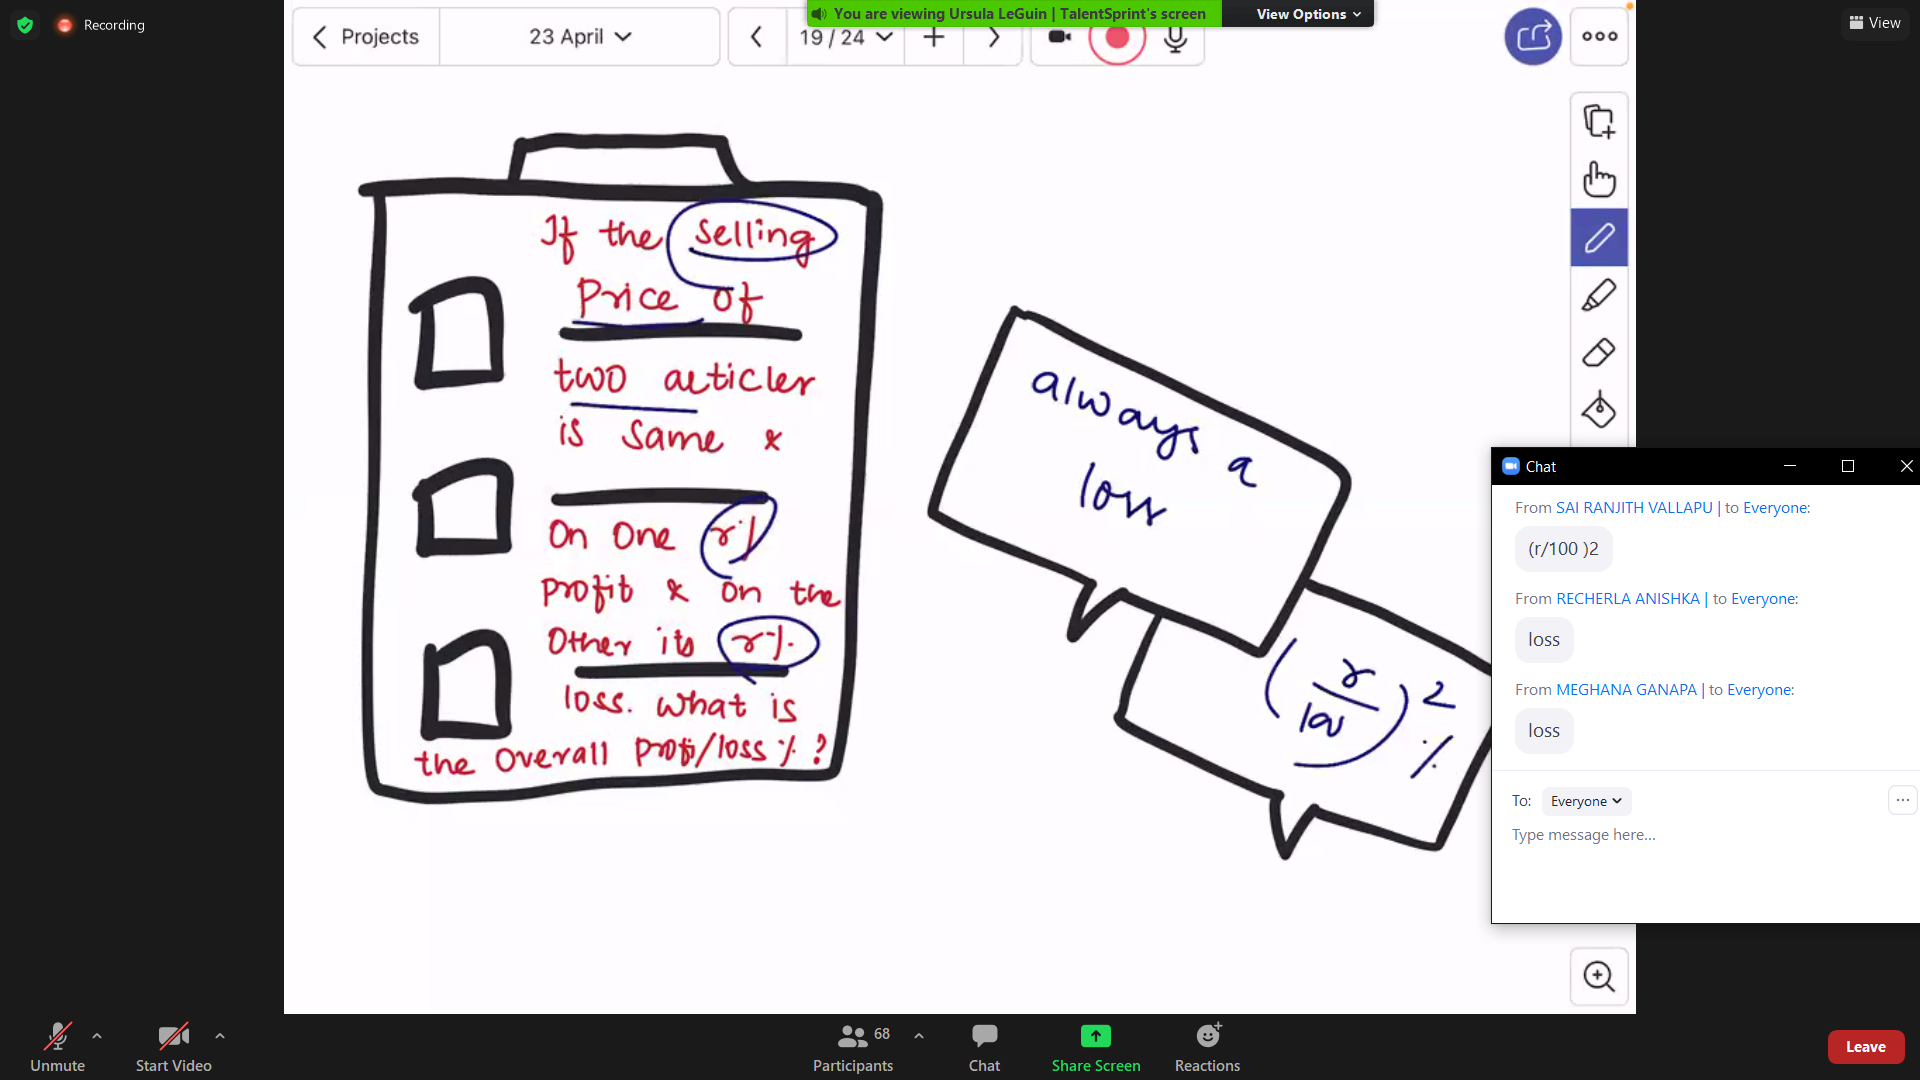 Recording
You are viewing Ursula LeGuin | TalentSprint's screen
View Options
View
Projects
23 April
19 / 24
If the Selling
Price of
two articles
is Same &
On One r%
profit & on the
Other its r%
loss. What is
the Overall Profit/loss %?
always a
loss
(r/100)2 %
Chat
From SAI RANJITH VALLAPU | to Everyone:
(r/100 )2
From RECHERLA ANISHKA | to Everyone:
loss
From MEGHANA GANAPA | to Everyone:
loss
To: Everyone
Type message here...
Unmute
Start Video
68
Participants
Chat
Share Screen
Reactions
Leave